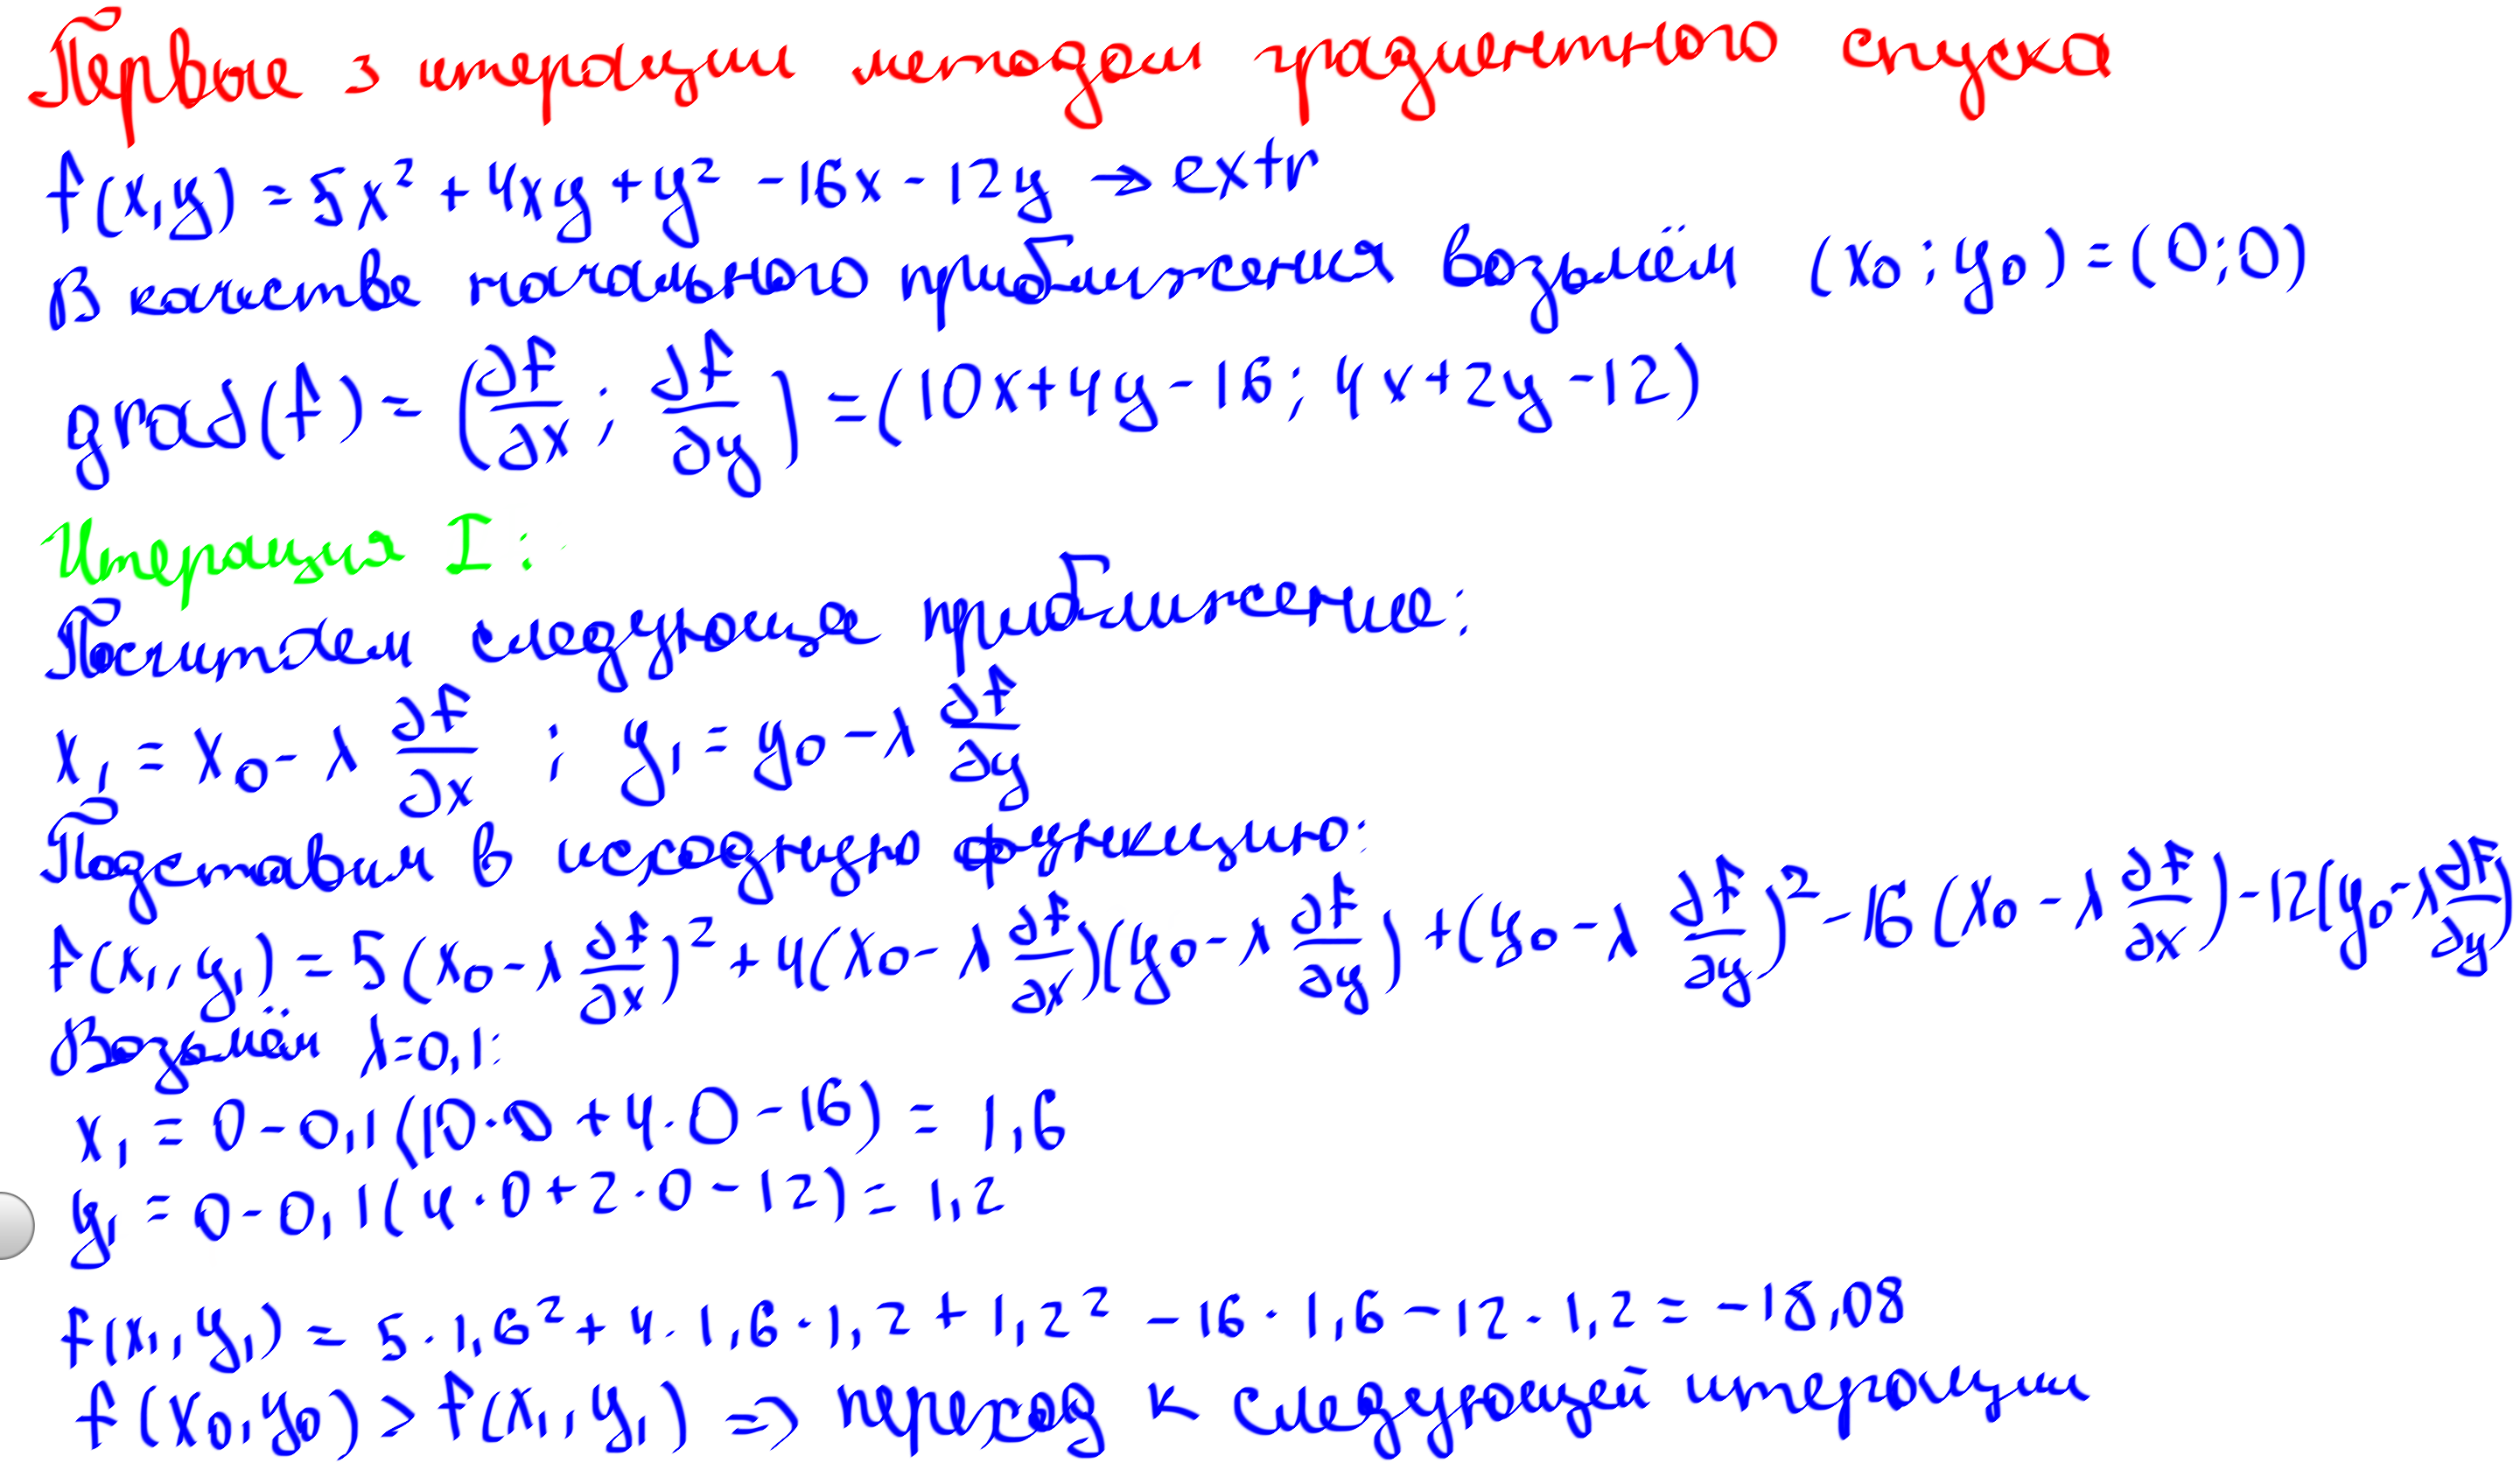 Первые 3 итерации методом градиентного спуска
f(x,y) = 5x² + 4xy + y² - 16x - 12y → extr
В качестве начального приближения возьмём (x₀; y₀) = (0; 0)
grad(f) = (∂f/∂x ; ∂f/∂y) = (10x+4y-16; 4x+2y-12)
Итерация I:
Посчитаем следующее приближение:
x₁ = x₀ - λ ∂f/∂x ; y₁ = y₀ - λ ∂f/∂y
Подставим в исходную функцию:
f(x₁, y₁) = 5(x₀ - λ ∂f/∂x)² + 4(x₀ - λ ∂f/∂x)(y₀ - λ ∂f/∂y) + (y₀ - λ ∂f/∂y)² - 16(x₀ - λ ∂f/∂x) - 12(y₀ - λ ∂f/∂y)
Возьмём λ=0,1:
x₁ = 0 - 0,1(10·0 + 4·0 - 16) = 1,6
y₁ = 0 - 0,1(4·0 + 2·0 - 12) = 1,2
f(x₁, y₁) = 5·1,6² + 4·1,6·1,2 + 1,2² - 16·1,6 - 12·1,2 = -18,08
f(x₀, y₀) > f(x₁, y₁) ⇒ переход к следующей итерации